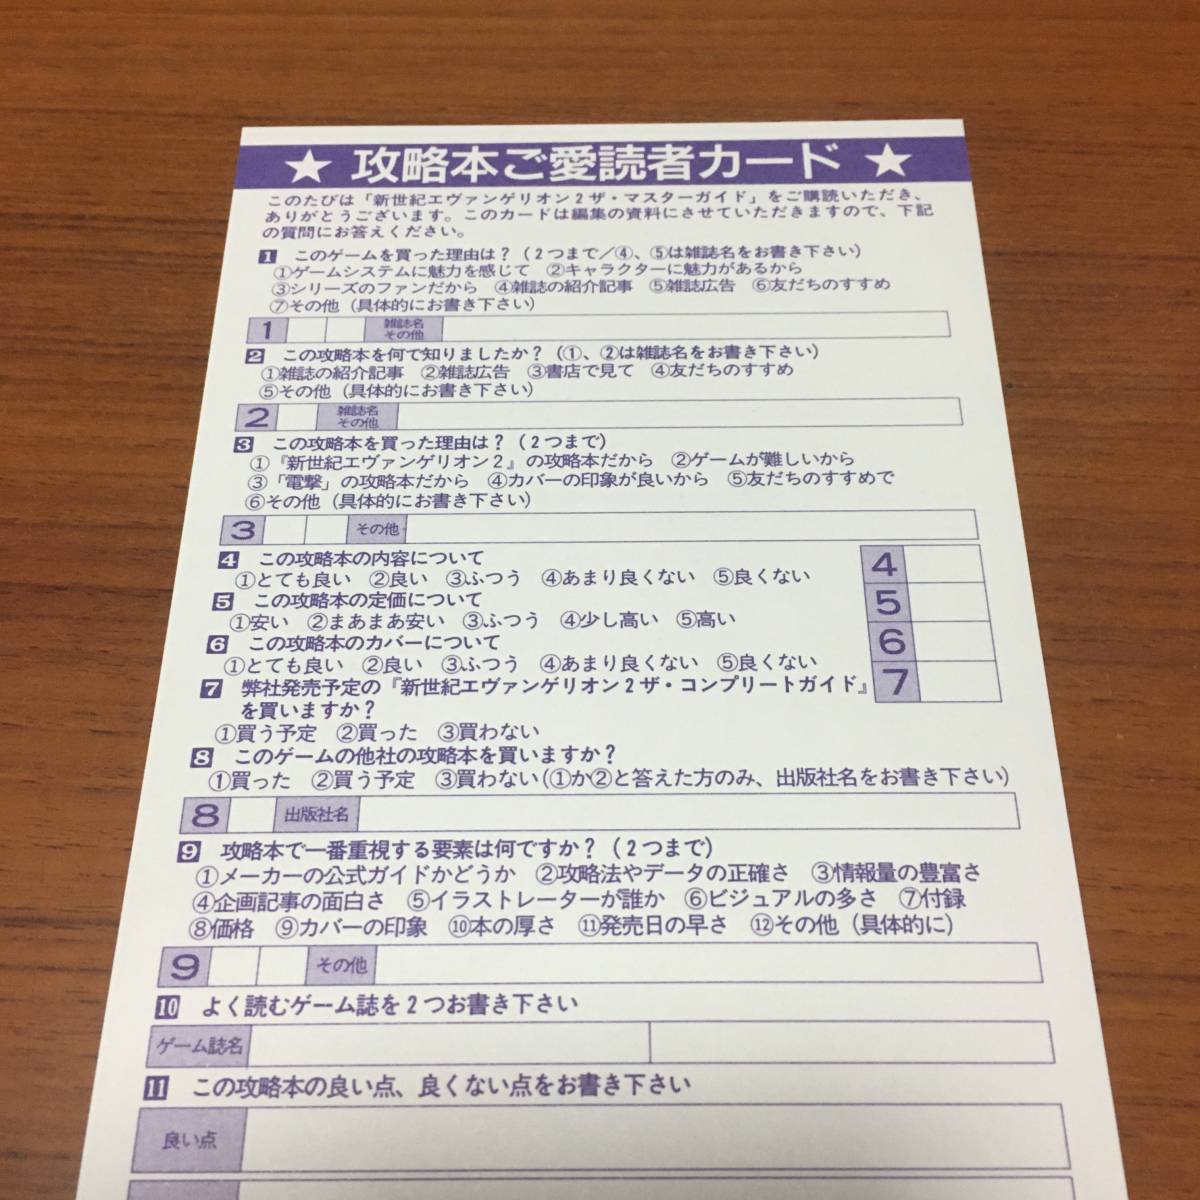 ★ 攻略本ご愛読者カード ★
このたびは「新世紀エヴァンゲリオン2ザ・マスターガイド」をご購読いただき、
ありがとうございます。このカードは編集の資料にさせていただきますので、下記
の質問にお答えください。
1 このゲームを買った理由は?(2つまで/④、⑤は雑誌名をお書き下さい)
①ゲームシステムに魅力を感じて ②キャラクターに魅力があるから
③シリーズのファンだから ④雑誌の紹介記事 ⑤雑誌広告 ⑥友だちのすすめ
⑦その他(具体的にお書き下さい)
1 雑誌名
その他
2 この攻略本を何で知りましたか?(①、②は雑誌名をお書き下さい)
①雑誌の紹介記事 ②雑誌広告 ③書店で見て ④友だちのすすめ
⑤その他(具体的にお書き下さい)
2 雑誌名
その他
3 この攻略本を買った理由は?(2つまで)
①『新世紀エヴァンゲリオン2』の攻略本だから ②ゲームが難しいから
③「電撃」の攻略本だから ④カバーの印象が良いから ⑤友だちのすすめで
⑥その他(具体的にお書き下さい)
3 その他
4 この攻略本の内容について
①とても良い ②良い ③ふつう ④あまり良くない ⑤良くない
4
5 この攻略本の定価について
①安い ②まあまあ安い ③ふつう ④少し高い ⑤高い
5
6 この攻略本のカバーについて
①とても良い ②良い ③ふつう ④あまり良くない ⑤良くない
6
7 弊社発売予定の『新世紀エヴァンゲリオン2ザ・コンプリートガイド』
を買いますか?
7
①買う予定 ②買った ③買わない
8 このゲームの他社の攻略本を買いますか?
①買った ②買う予定 ③買わない(①か②と答えた方のみ、出版社名をお書き下さい)
8 出版社名
9 攻略本で一番重視する要素は何ですか?(2つまで)
①メーカーの公式ガイドかどうか ②攻略法やデータの正確さ ③情報量の豊富さ
④企画記事の面白さ ⑤イラストレーターが誰か ⑥ビジュアルの多さ ⑦付録
⑧価格 ⑨カバーの印象 ⑩本の厚さ ⑪発売日の早さ ⑫その他(具体的に)
9 その他
10 よく読むゲーム誌を2つお書き下さい
ゲーム誌名
11 この攻略本の良い点、良くない点をお書き下さい
良い点